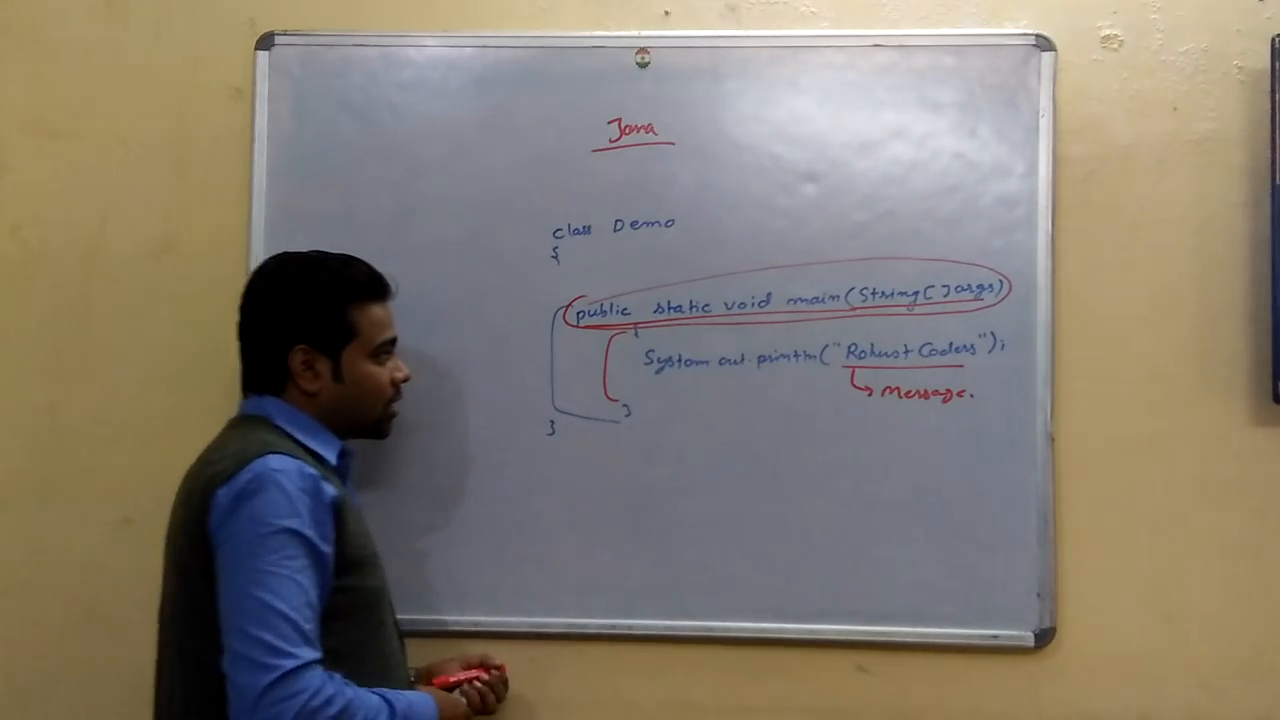 Java
class Demo
{
public static void main(String[]args)
{
System.out.println("Robust Coders");
Message.
}
}